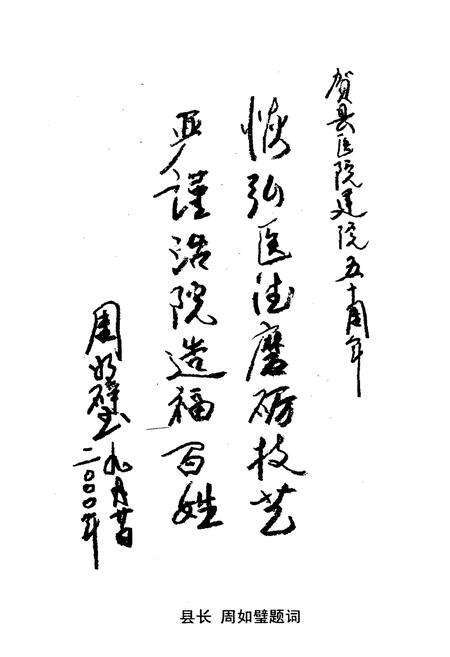 贺县医院建院五十周年
恢弘医德磨砺技艺
严谨治院造福百姓
周如璧
二〇〇〇年九月廿日
县长 周如璧题词